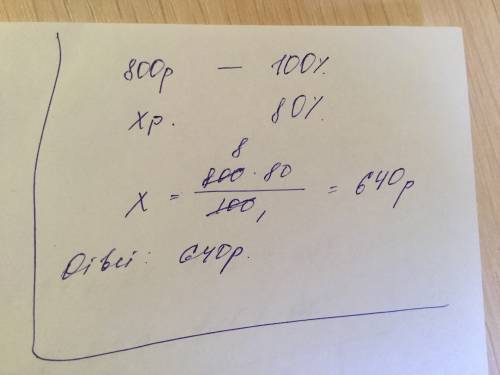 800р — 100%
хр. 80%
8
X = 800 · 80 / 100 = 640р
1
Ответ: 640р.